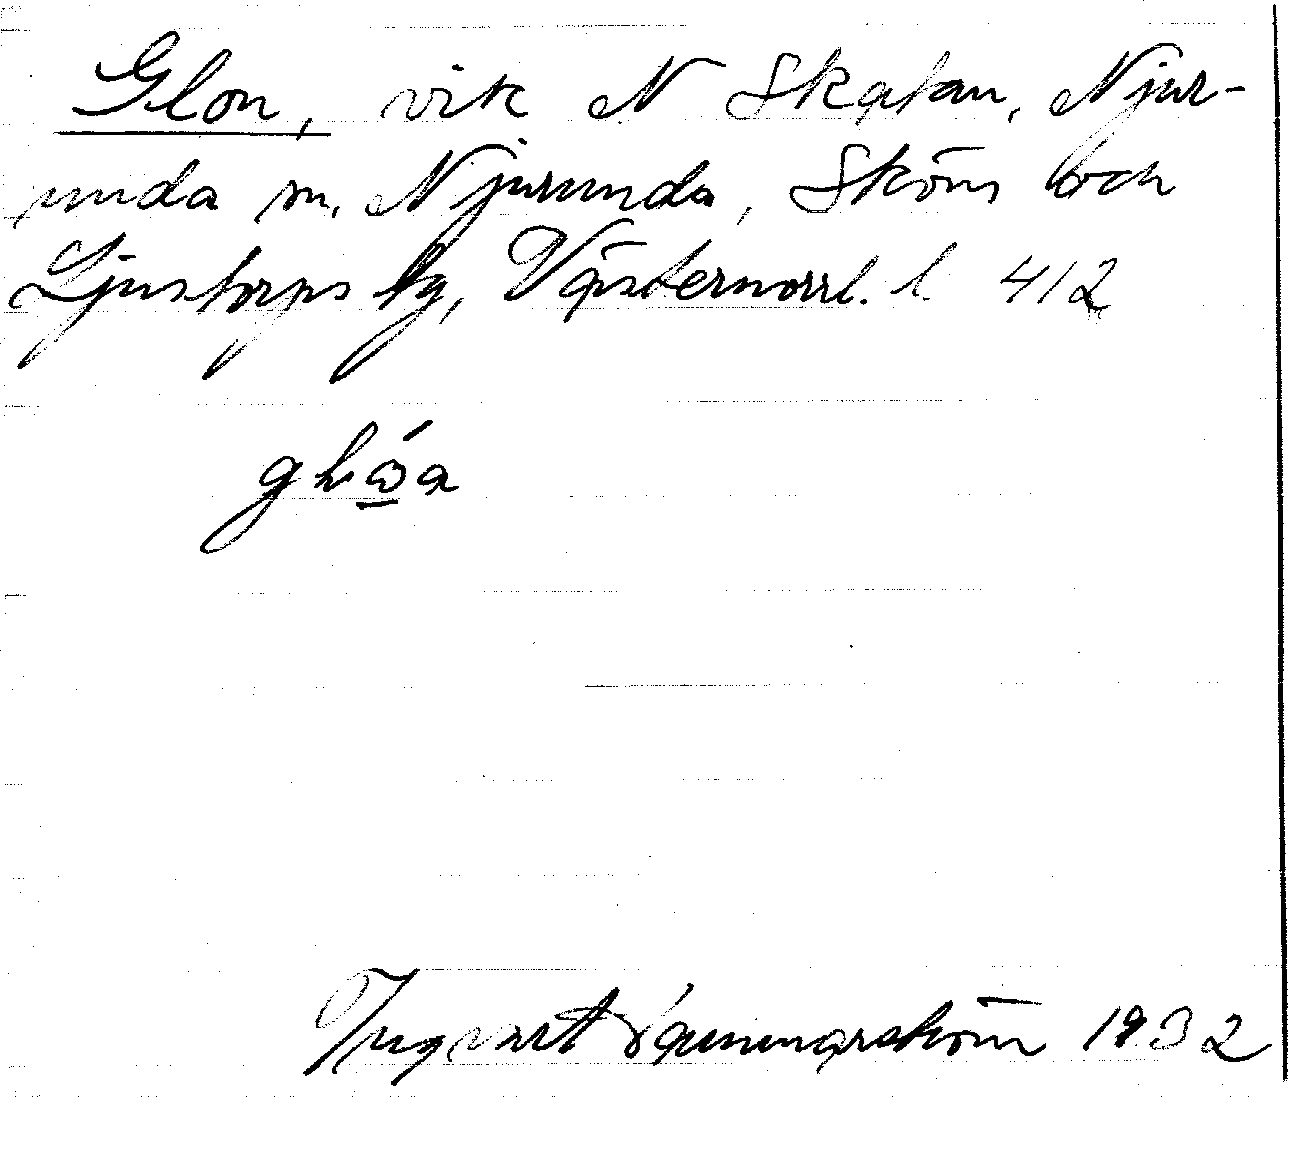 Glon, vik N Skatan, Njur-
unda sn, Njurunda, Sköns och
Ljustorps tg, Västernorrl. l. 412
Ingvart 1932